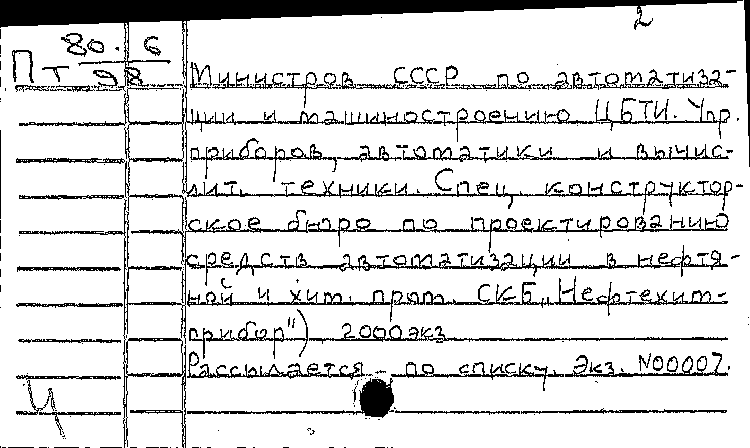 2
Пт 80.6
98
Министров СССР по автоматиза-
ции и машиностроению ЦБТИ. Упр.
приборов, автоматики и вычис-
лит. техники. Спец. конструктор-
ское бюро по проектированию
средств автоматизации в нефтя-
ной и хим. пром. СКБ „Нефтехим-
прибор") 2000экз
Рассылается - по списку. Экз. N00007.
Ч